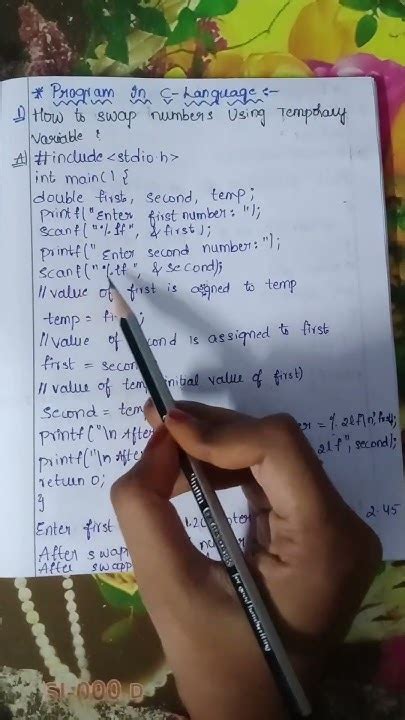 * Program In C-Language :-
1) How to swap numbers Using Temporary
Variable ?
A) #include <stdio.h>
int main( ) {
double first, second, temp;
printf("Enter first number: ");
scanf("%lf", & first);
printf(" Enter second number: ");
scanf("%lf", & second);
// value of first is assigned to temp
temp = fi
// value of second is assigned to first
first = secon
// value of tem initial value of first)
second = tem
printf("\n After = %.2lf\n", first);
printf("\n After 2lf", second);
return 0;
}
Enter first 1.20 2.45
After swap
After swapp
for good handwriting
SI-000 D